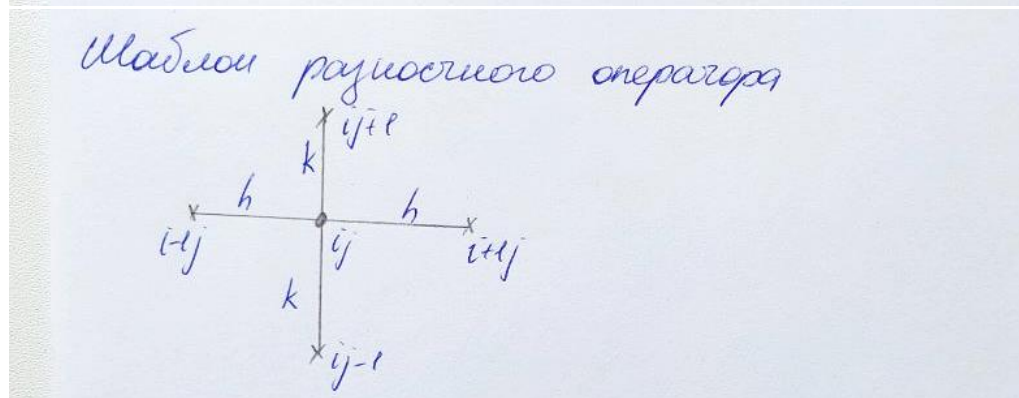 Шаблон разностного оператора
ij+1
k
h h
i-1j ij i+1j
k
ij-1